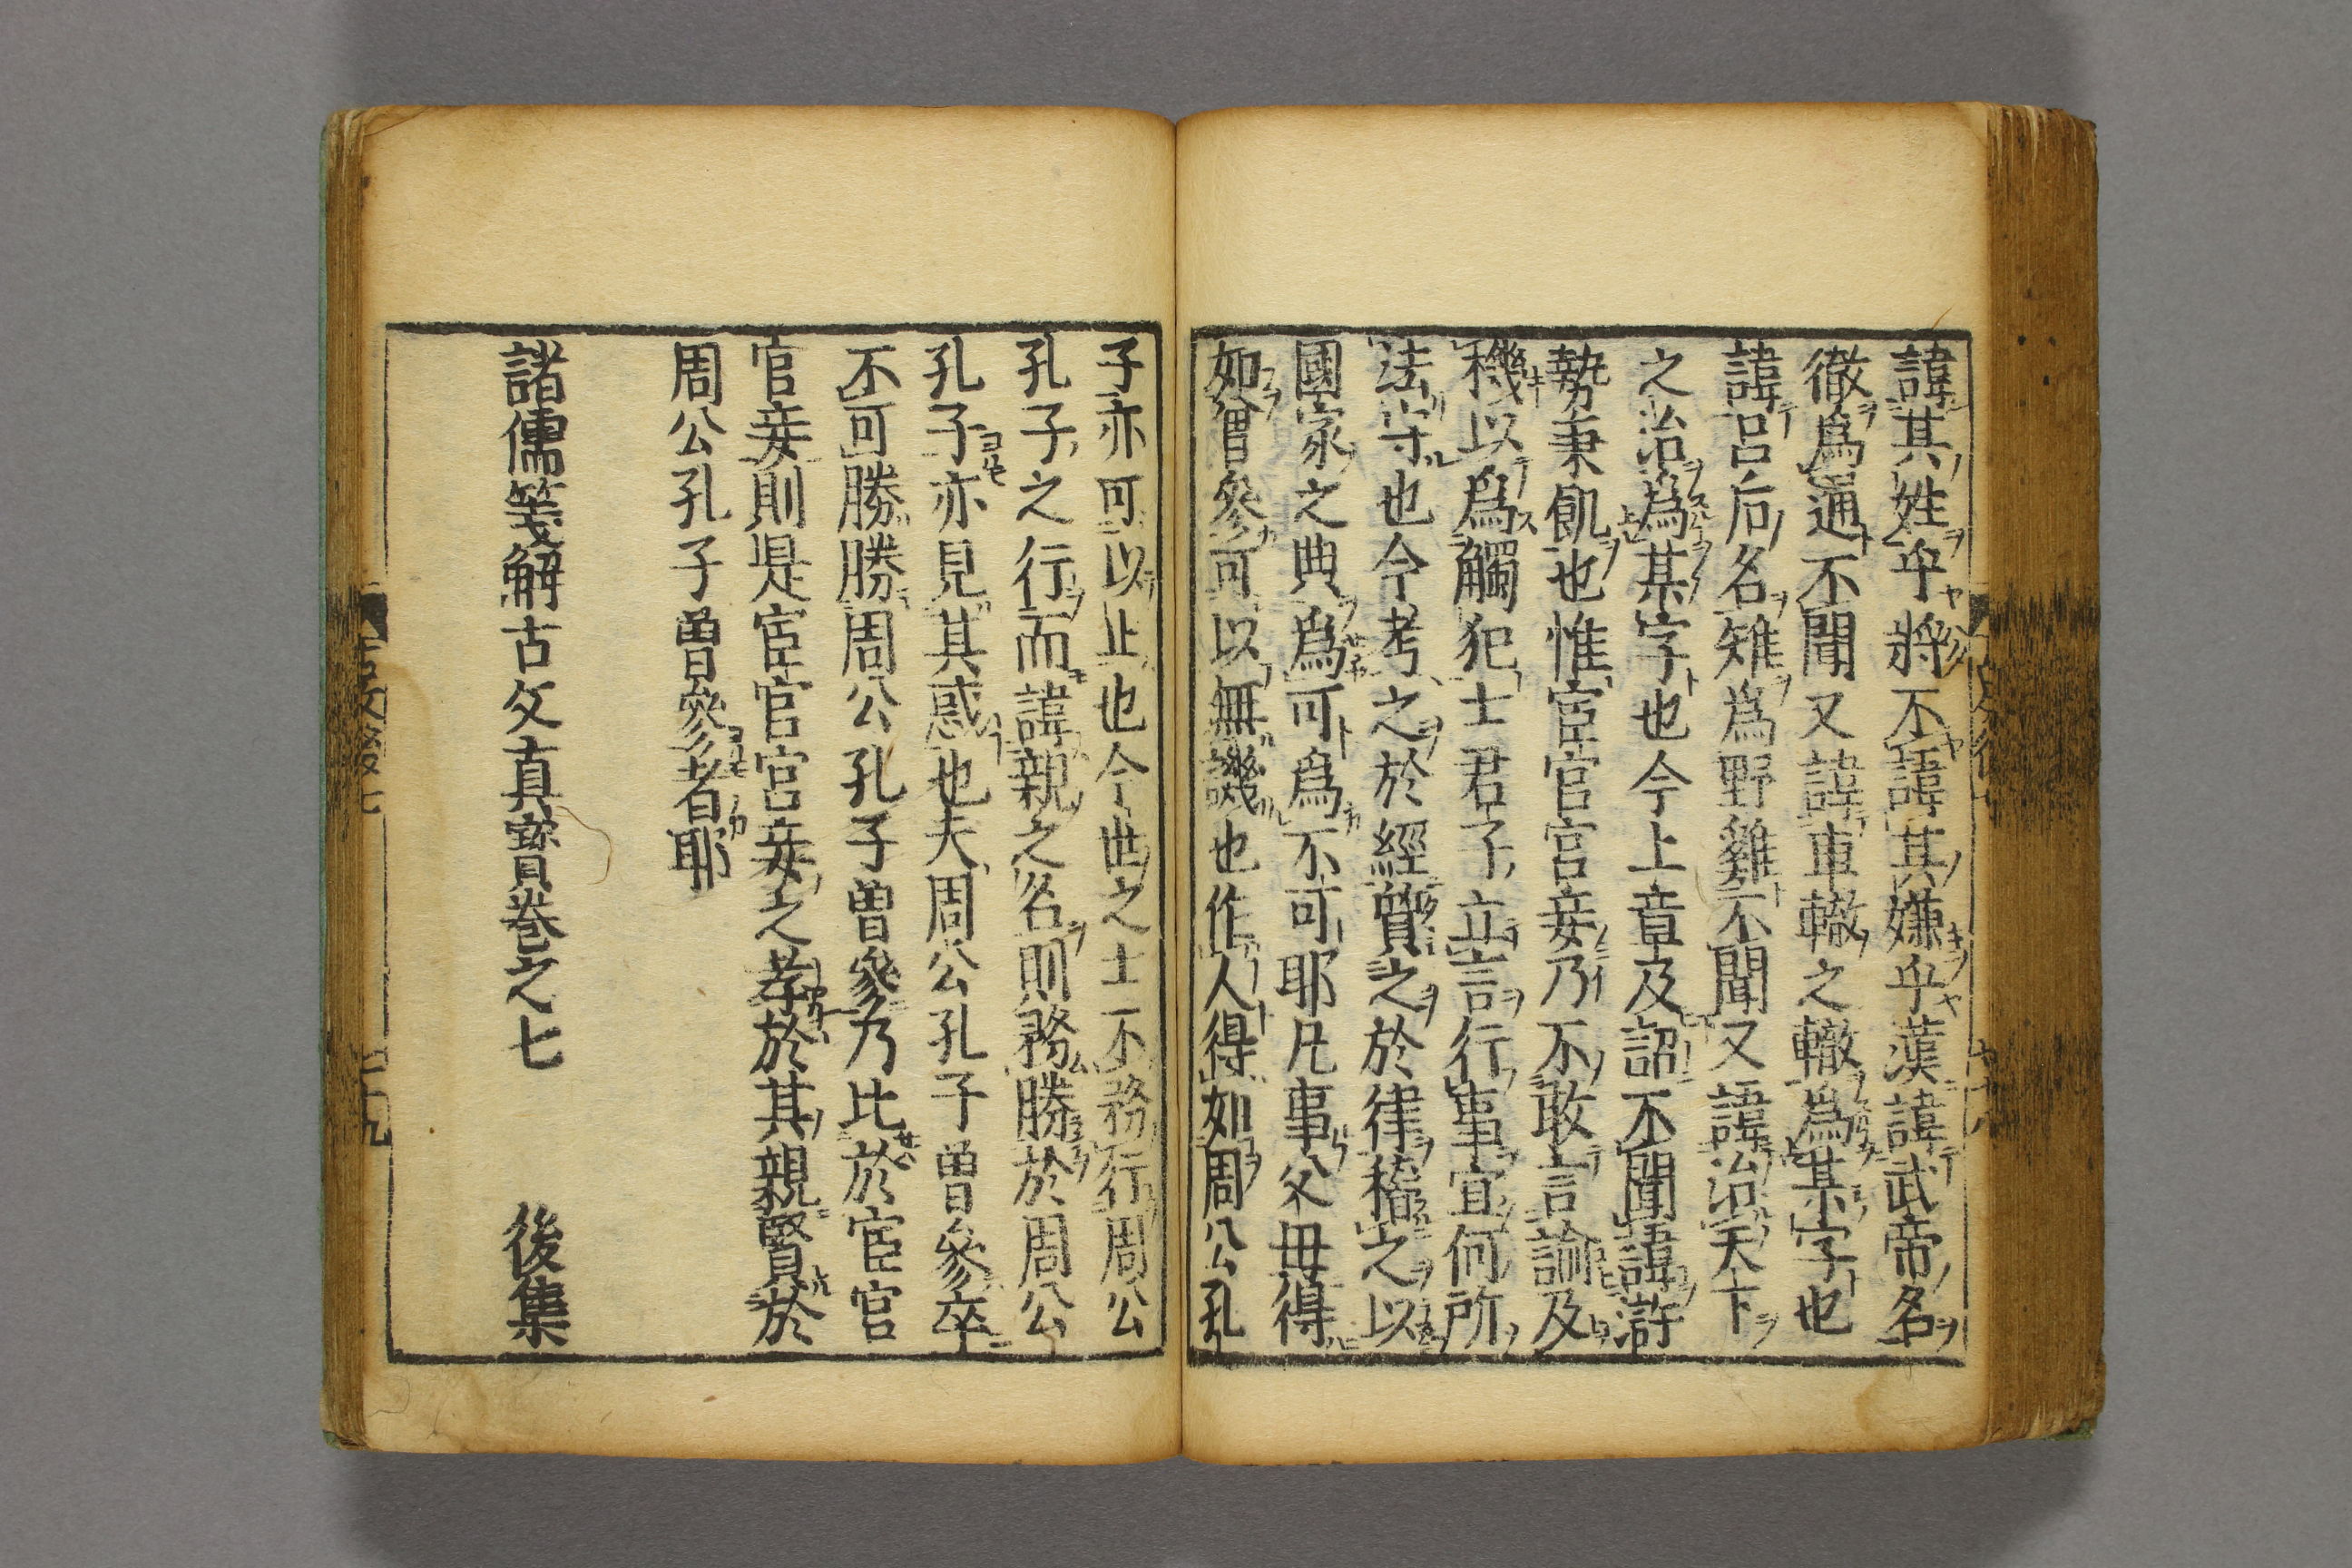 諱其姓乎將不諱其嫌乎漢諱武帝名
徹爲通不聞又諱車轍之轍爲某字也
諱呂后名雉爲野雞不聞又諱治天下
之治爲某字也今上章及詔不聞諱滸
勢秉飢也惟宦官宮妾乃不敢言諭及
機以爲觸犯士君子立言行事宜何所
法守也今考之於經質之於律稽之以
國家之典爲可爲不可耶凡事父母得
如曾參可以無譏也作人得如周公孔
子亦可以止也今世之士不務行周公
孔子之行而諱親之名則務勝於周公
孔子亦見其惑也夫周公孔子曾參卒
不可勝勝周公孔子曾參乃比於宦官
官妾則是宦官宮妾之孝於其親賢於
周公孔子曾參者耶
諸儒箋解古文真寶卷之七 後集